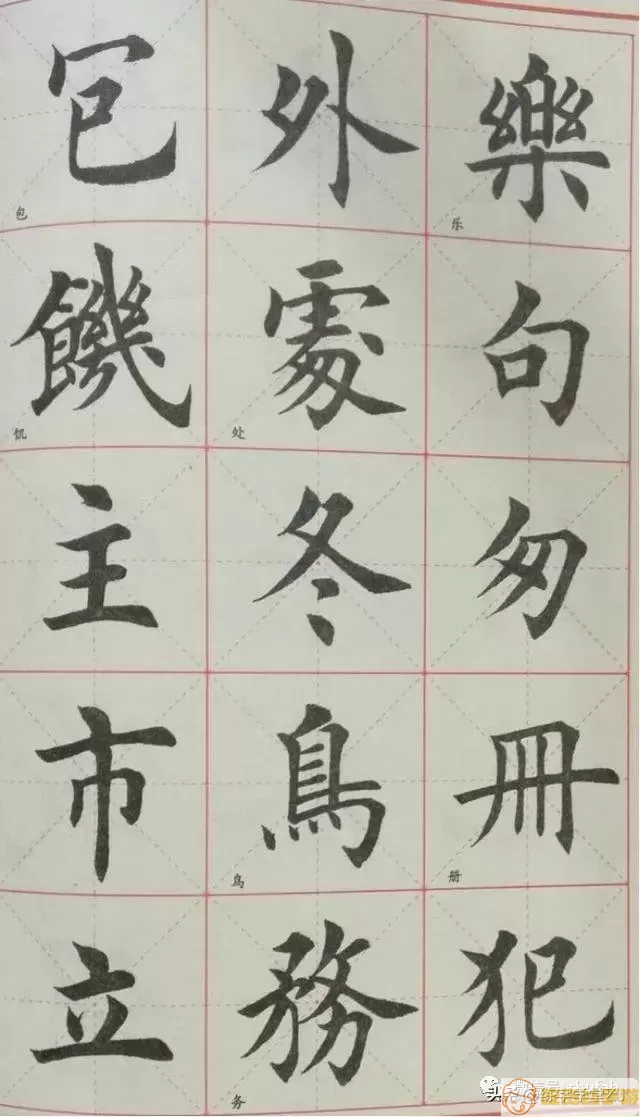 樂句匆冊犯
乐
册
外處冬鳥務
处
鸟
务
包饑主市立
包
饥
微信号: shufab